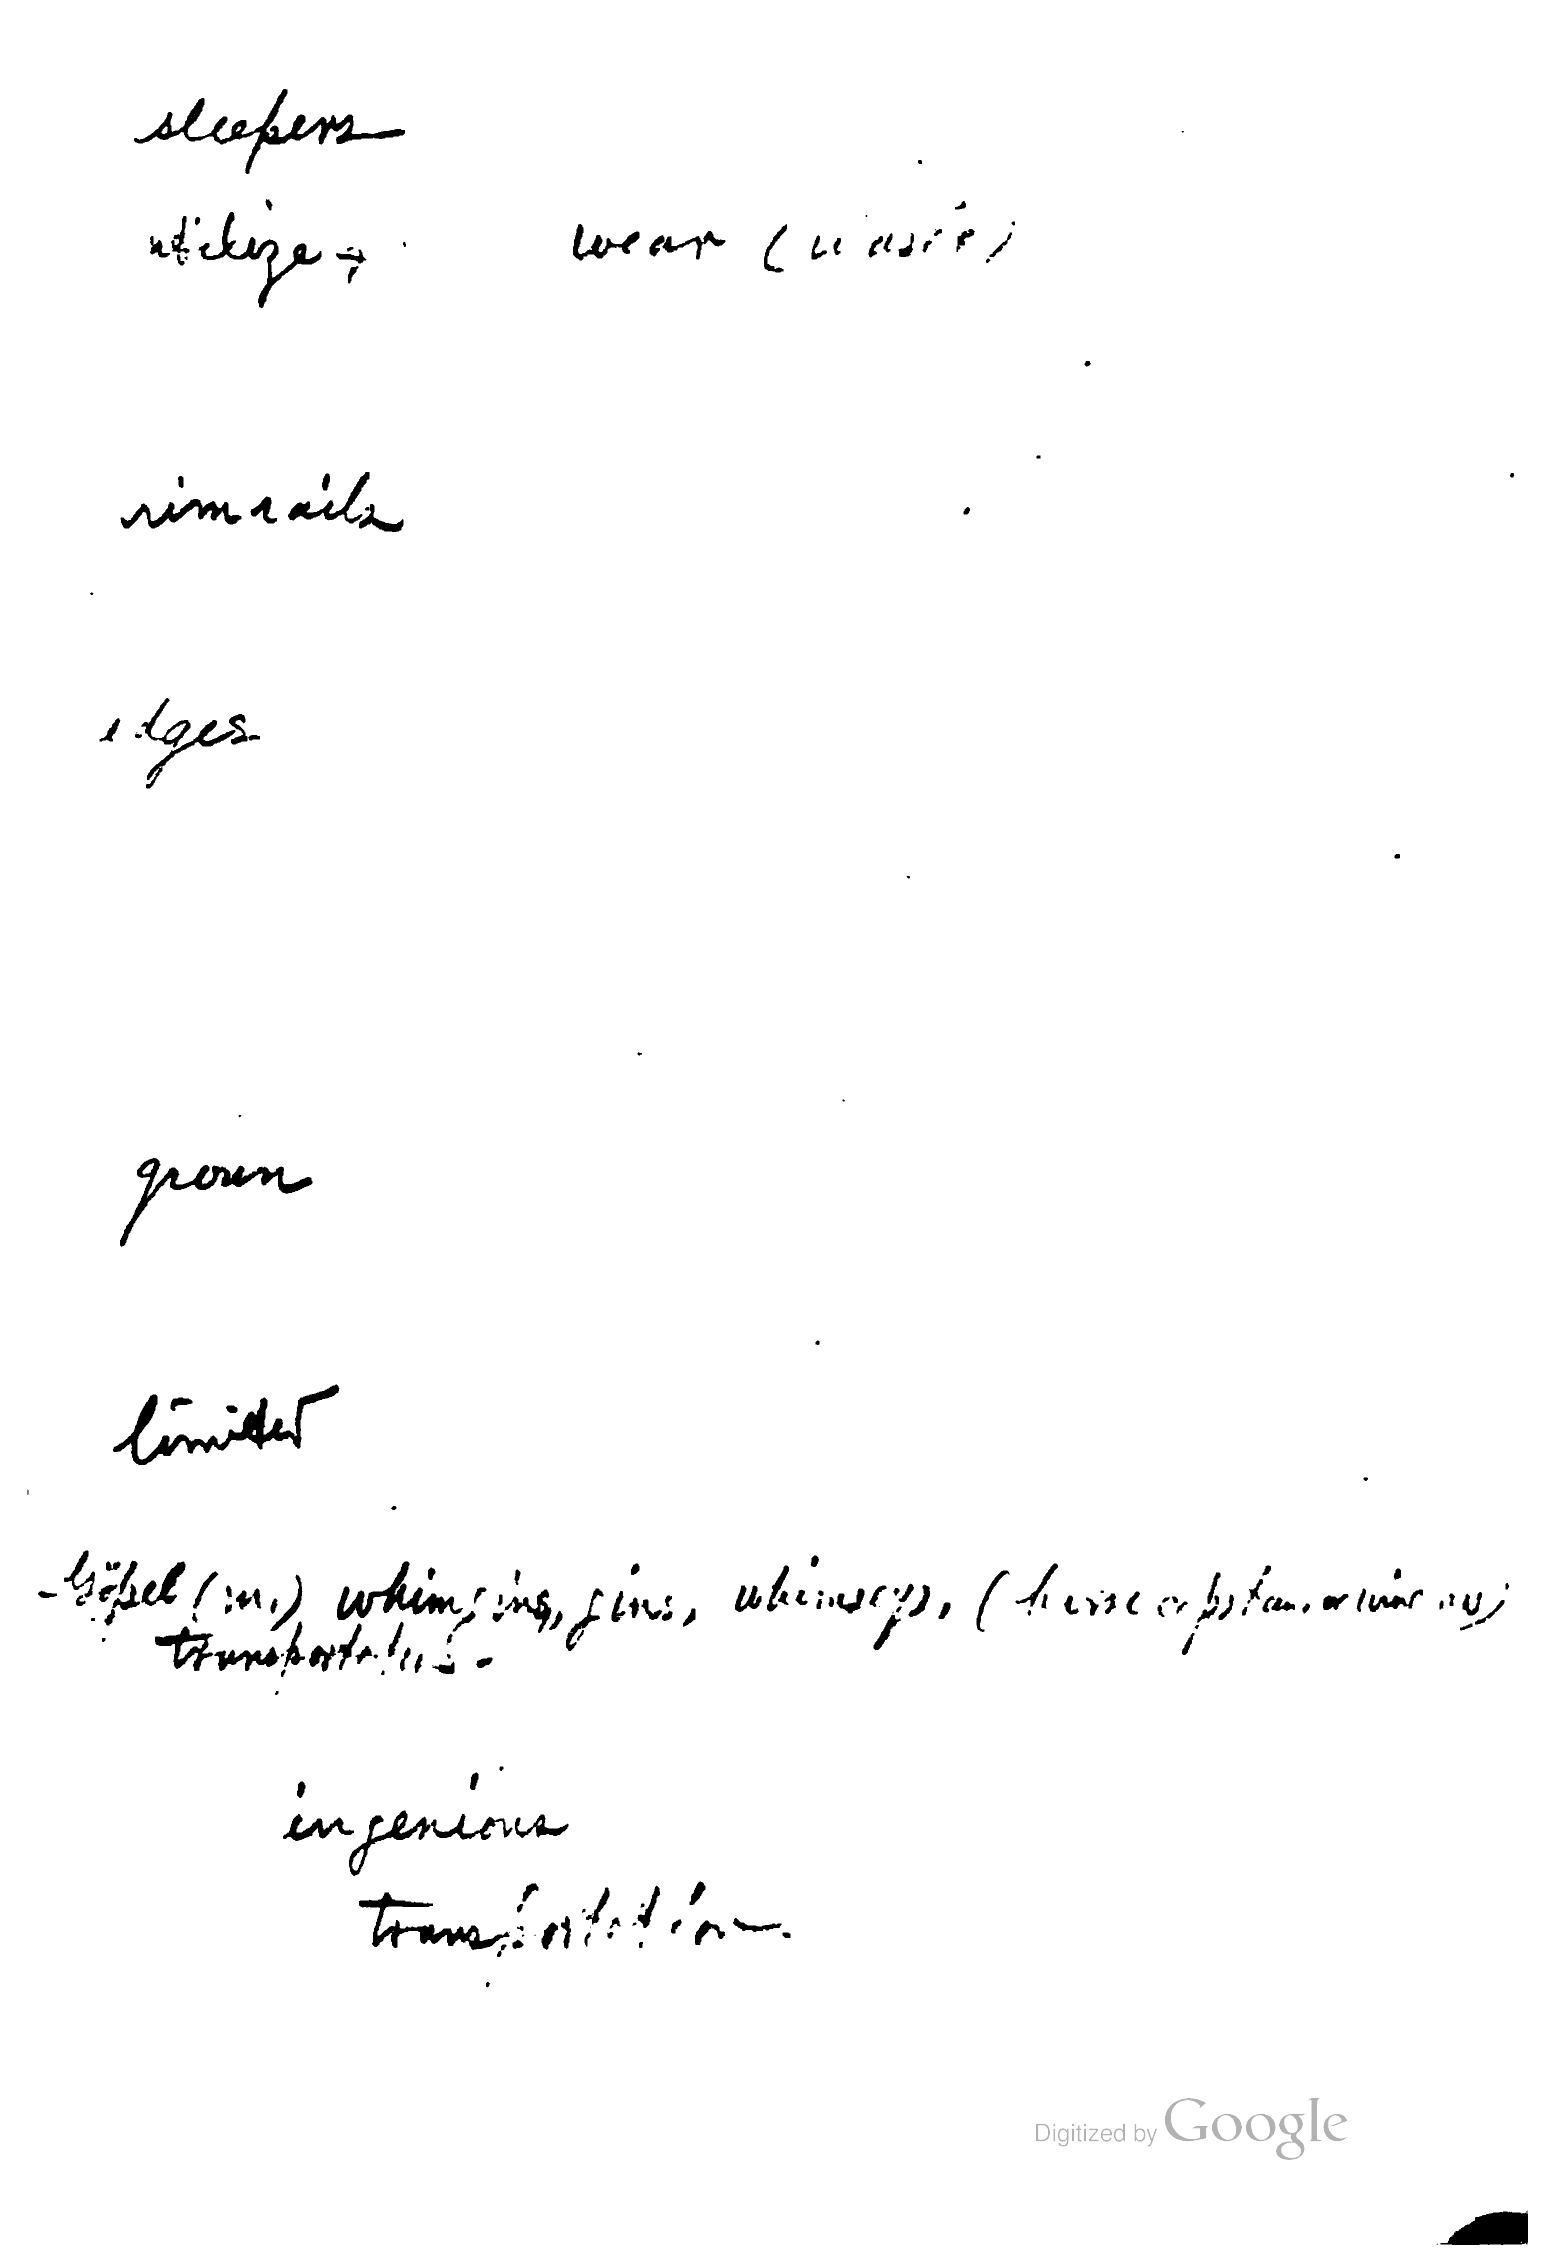 sleepers
utilize wear (usure)
rim rails
edges
grown
limited
- Göpel (m.) whim, gins, gins, whimseys, (horse capstan, or
transportation.
ingenious
transportation.
Digitized by Google